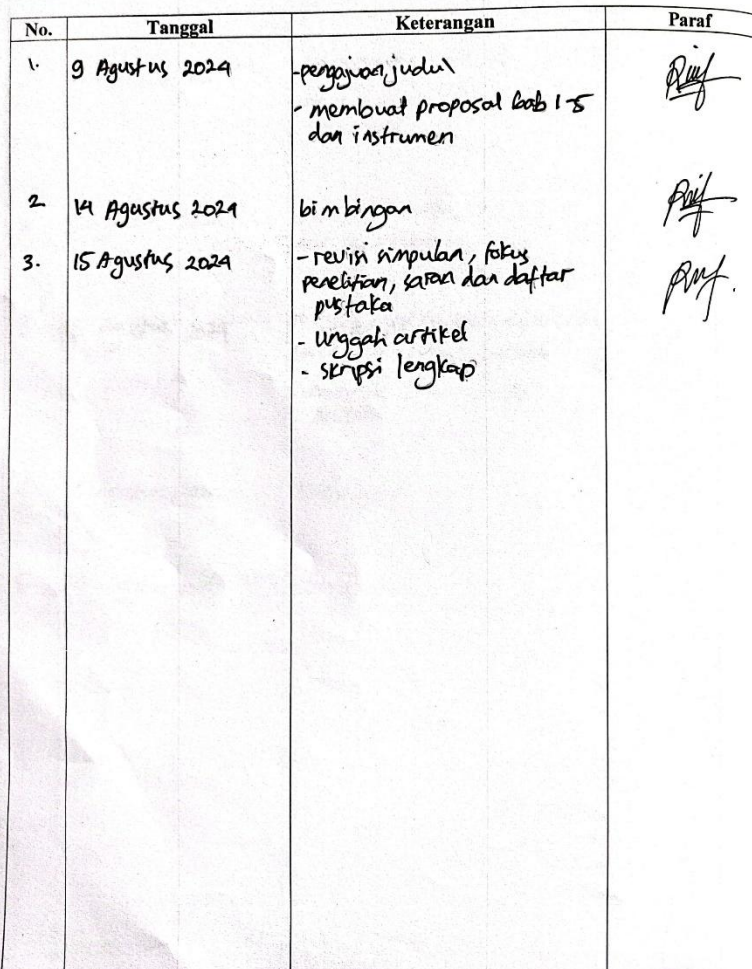 No. Tanggal Keterangan Paraf
1. 9 Agustus 2024 -pengajuan judul
- membuat proposal bab 1-5
dan instrumen
2 14 Agustus 2024 bimbingan
3. 15 Agustus 2024 - revisi simpulan, fokus
penelitian, saran dan daftar
pustaka
- unggah artikel
- skripsi lengkap